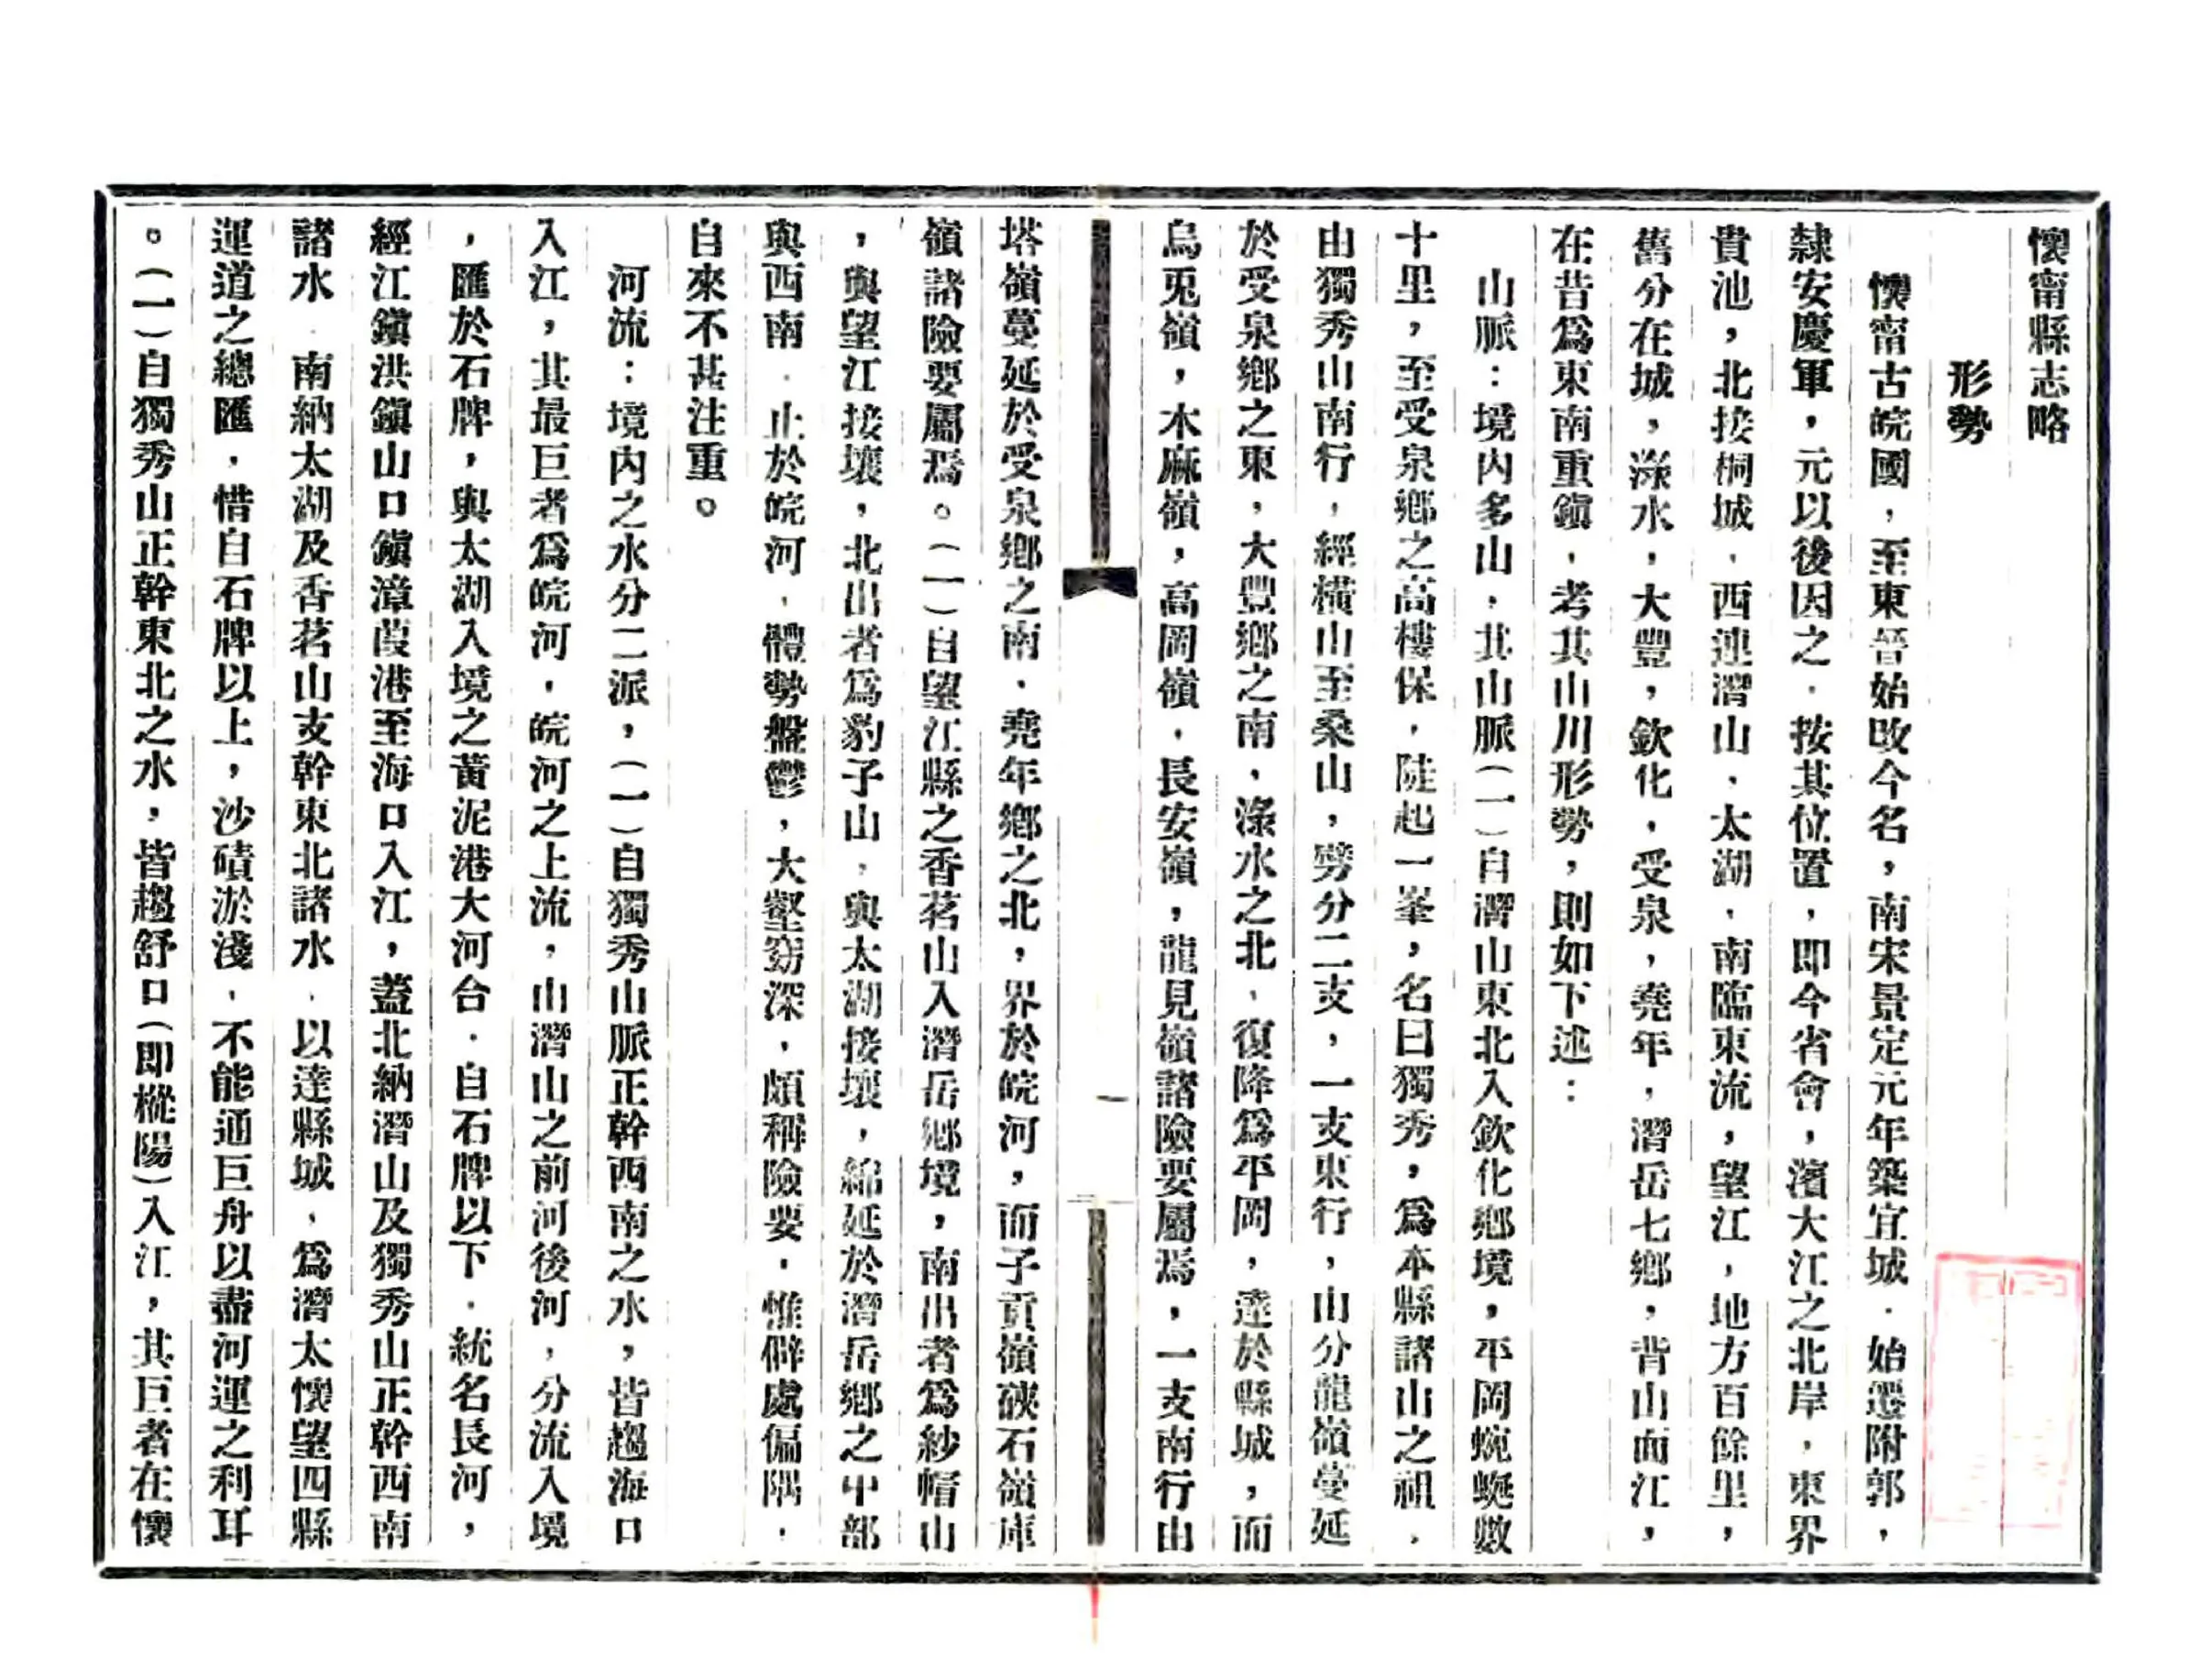 懷甯縣志略
形勢
懷甯古皖國，至東晉始改今名，南宋景定元年築宜城．始遷附郭，
隸安慶軍，元以後因之．按其位置，即今省會，濱大江之北岸．東界
貴池，北接桐城．西連潛山．太湖．南臨東流，望江，地方百餘里，
舊分在城，淥水，大豐，欽化，受泉，堯年，潛岳七鄉，背山面江，
在昔爲東南重鎮．考其山川形勢，則如下述：
山脈：境内多山，其山脈（一）自潛山東北入欽化鄉境，平岡蜿蜒數
十里，至受泉鄉之高樓保，陡起一峯，名曰獨秀，爲本縣諸山之祖．
由獨秀山南行，經橫山至桑山，劈分二支，一支東行，由分龍嶺蔓延
於受泉鄉之東，大豐鄉之南，淥水之北，復降爲平岡，達於縣城，而
烏兎嶺，木麻嶺，高岡嶺，長安嶺，龍見嶺諸險要屬焉，一支南行由
塔嶺蔓延於受泉鄉之南．堯年鄉之北，界於皖河，而子貢嶺硤石嶺庫
嶺諸險要屬焉。（一）自望江縣之香茗山入潛岳鄉境，南出者爲紗帽山
，與望江接壤，北出者爲豹子山，與太湖接壤，綿延於潛岳鄉之中部
與西南．止於皖河．體勢盤鬱，大壑窈深，頗稱險要．惟僻處偏隅．
自來不甚注重。
河流：境内之水分二派，（一）自獨秀山脈正幹西南之水，皆趨海口
入江，其最巨者爲皖河．皖河之上流，由潛山之前河後河，分流入境
，匯於石牌，與太湖入境之黃泥港大河合．自石牌以下．統名長河，
經江鎮洪鎮山口鎮漳葭港至海口入江，蓋北納潛山及獨秀山正幹西南
諸水．南納太湖及香茗山支幹東北諸水．以達縣城．爲潛太懷望四縣
運道之總匯．惜自石牌以上，沙磧淤淺．不能通巨舟以盡河運之利耳
。（一）自獨秀山正幹東北之水，皆趨舒口（即樅陽）入江，其巨者在懷
一